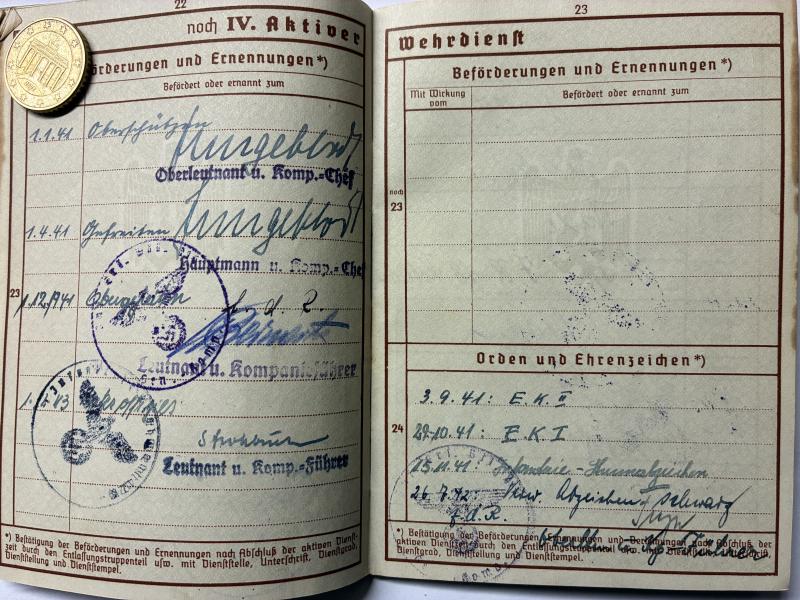 22
noch IV. Aktiver
Beförderungen und Ernennungen*)
Befördert oder ernannt zum
1.1.41 Oberschützen
Jungeblodt
Oberleutnant u. Komp.-Chef
1.4.41 Gefreiten
Jungeblodt
Hauptmann u. Komp.-Chef
23
1.12.41 Obergefreiten
f. d. R.
Leutnant u. Kompanieführer
Leutnant u. Komp.-Führer
*) Bestätigung der Beförderungen und Ernennungen nach Abschluß der aktiven Dienst-
zeit durch den Entlassungstruppenteil usw. mit Dienststelle, Unterschrift, Dienstgrad,
Dienststellung und Dienststempel.
23
Wehrdienst
Beförderungen und Ernennungen*)
Mit Wirkung vom
Befördert oder ernannt zum
noch
23
Orden und Ehrenzeichen*)
3.9.41: E.K. II
24
29.10.41: E K I
15.11.41: Infanterie-Sturmabzeichen
26.7.42: Verw. Abzeichen schwarz
f.d.R.
*) Bestätigung der Beförderungen und Ernennungen nach Abschluß der
aktiven Dienstzeit durch den Entlassungstruppenteil usw. mit Dienststelle, Unterschrift,
Dienstgrad, Dienststellung und Dienststempel.